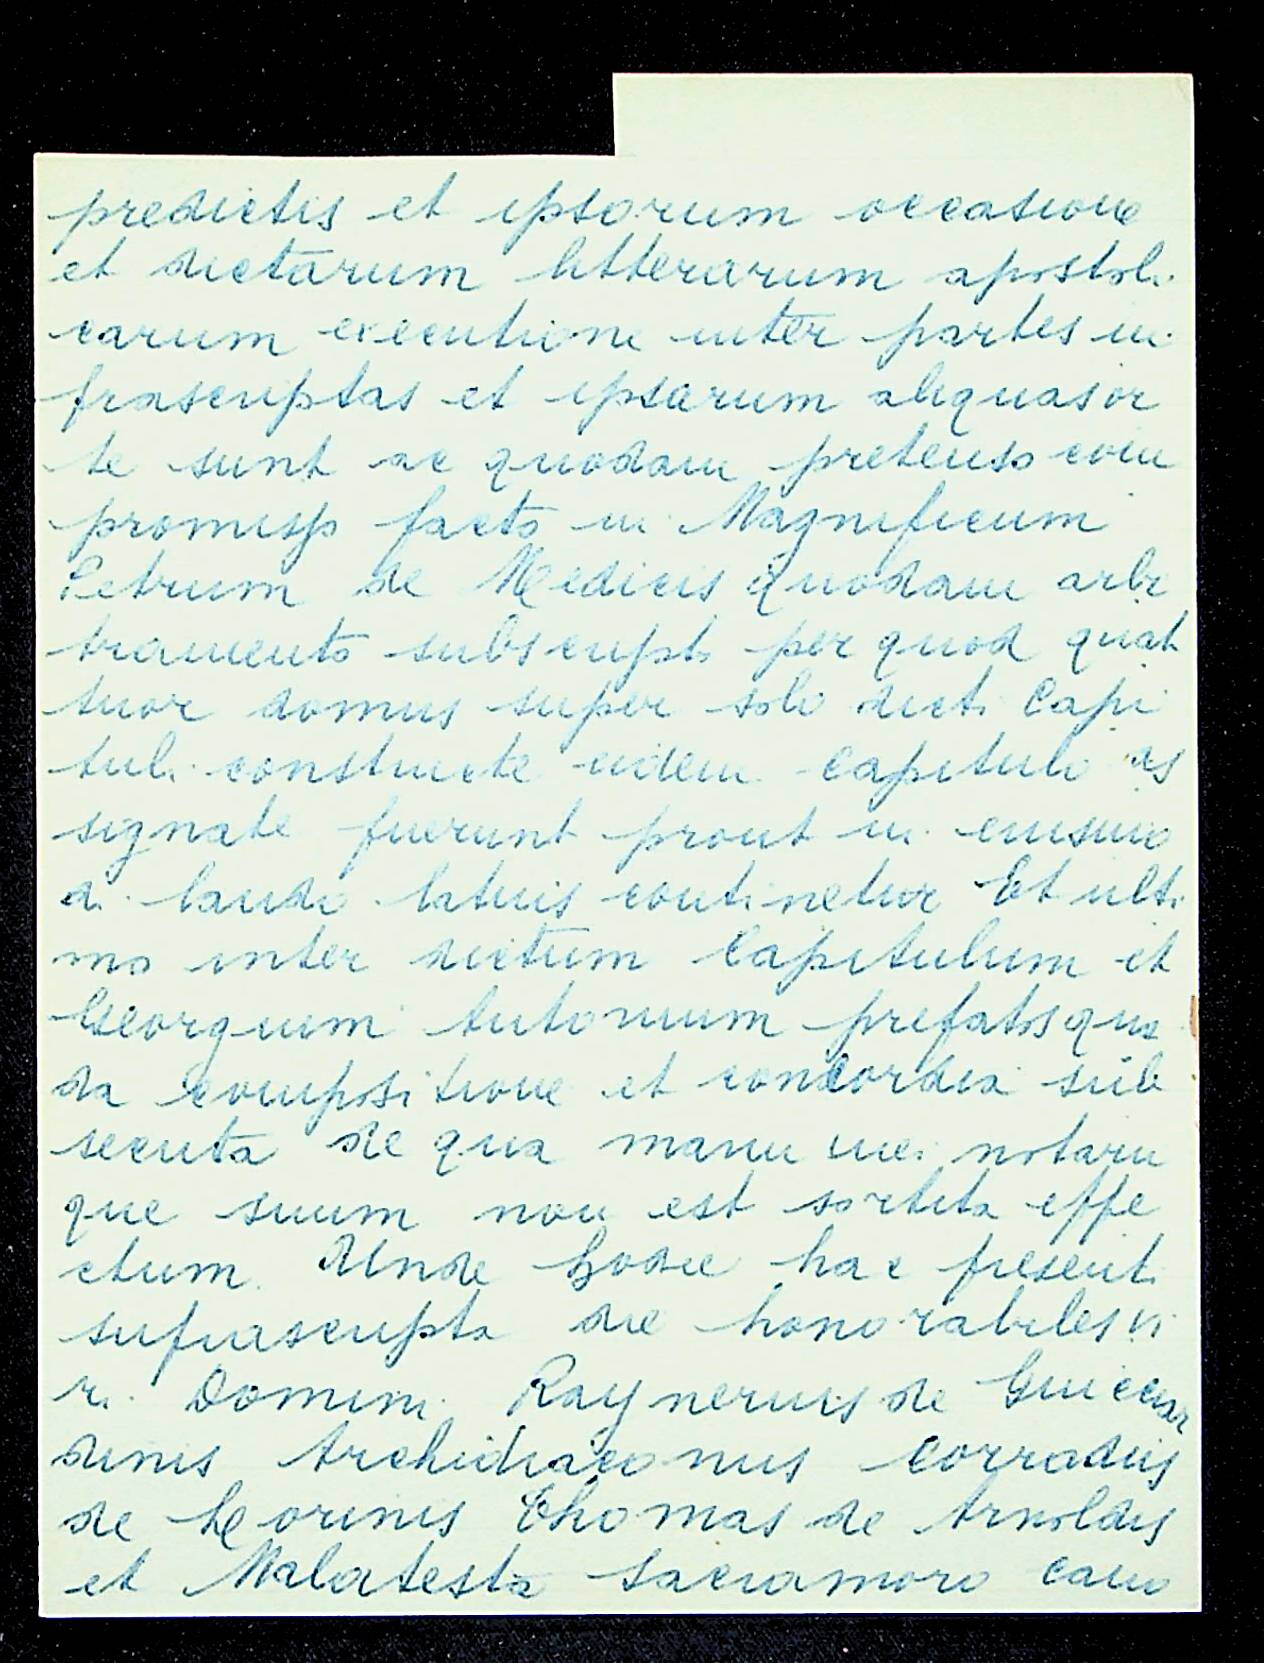 predictis et ipsorum occasione
et dictarum litterarum apostoli
carum executione inter partes in
frascriptas et ipsarum aliquas or
te sunt ac quodam pretenso com
promisso facto in Magnificum
Petrum de Medicis quodam arbi
tramento subscripto per quod quat
tuor domus super solo dicti Capi
tuli constructe eidem Capitulo as
signate fuerunt prout in eiusmo
di laudo latius continetur Et ulti
mo inter dictum Capitulum et
Georgium Antonium prefatos qua
da compositione et concordia sub
secuta de qua manu mei notarii
que suum non est sortita effe
ctum. Unde hodie hac presenti
suprascripta die honorabiles vi
ri Domini Raynerius de Guicciar
dinis Archidiaconus Corradus
de Morinis Thomas de Arnoldis
et Malatesta Sacramoro cano